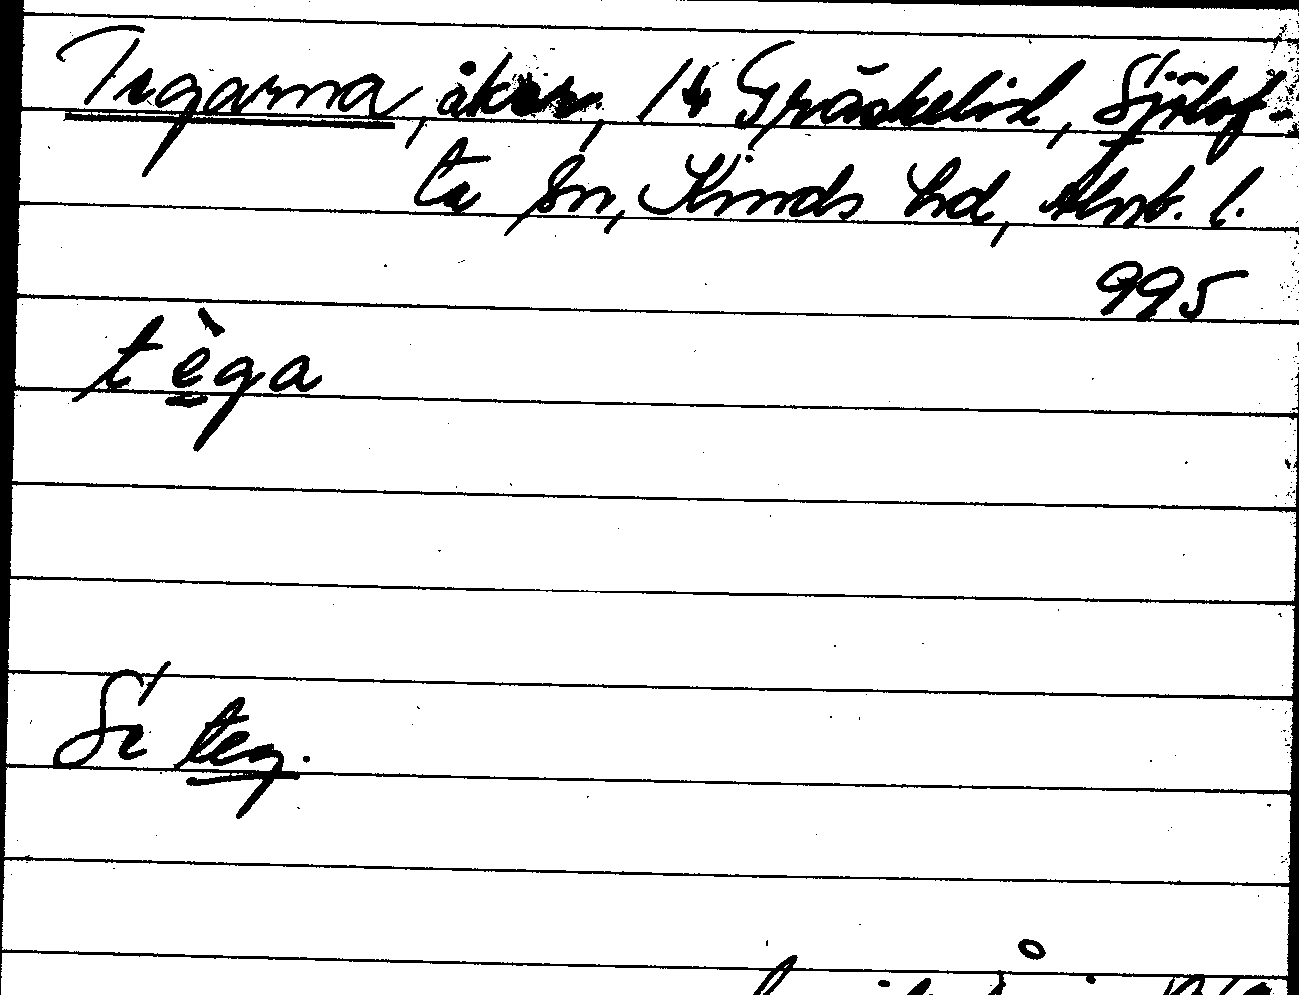 Tegarna, åker, 1/4 Gräskelid, Sjötof-
ta sn, Kinds hd, Älvsb. l.
995
tèga
Se teg.